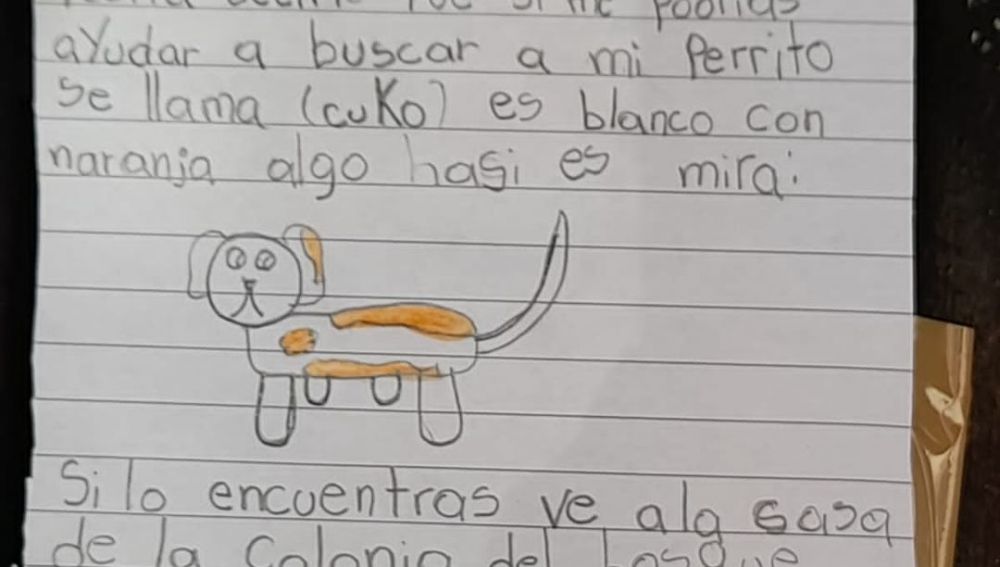 ayudar a buscar a mi Perrito
se llama (cuKo) es blanco con
naranja algo hasi es mira:
Si lo encuentras ve alg casa
de la Colonia del